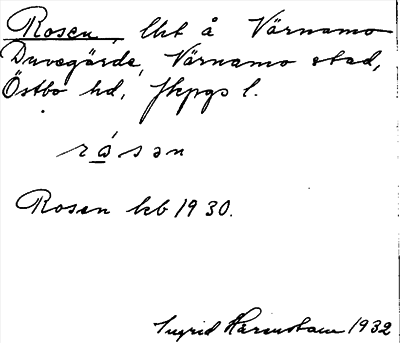 Rosen, lht å Värnamo
Duvegärde, Värnamo stad,
Östbo hd, Jkpgs l.
rósən
Rosen kb 1930.
Ingrid Härenstam 1932